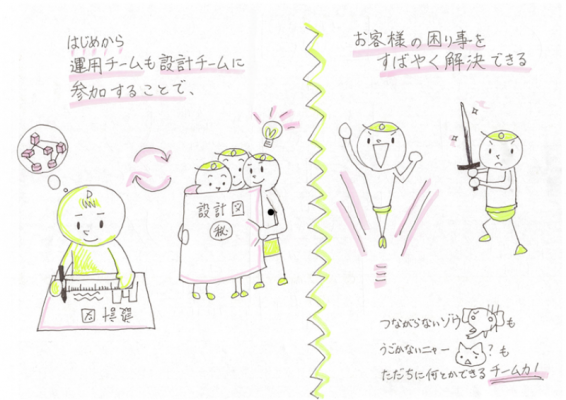 はじめから
運用チームも設計チームに
参加することで、
設計図
秘
設計図
お客様の困り事を
すばやく解決できる
つながらないゾウ も
うごかないニャー ? も
ただちに何とかできる チーム力!